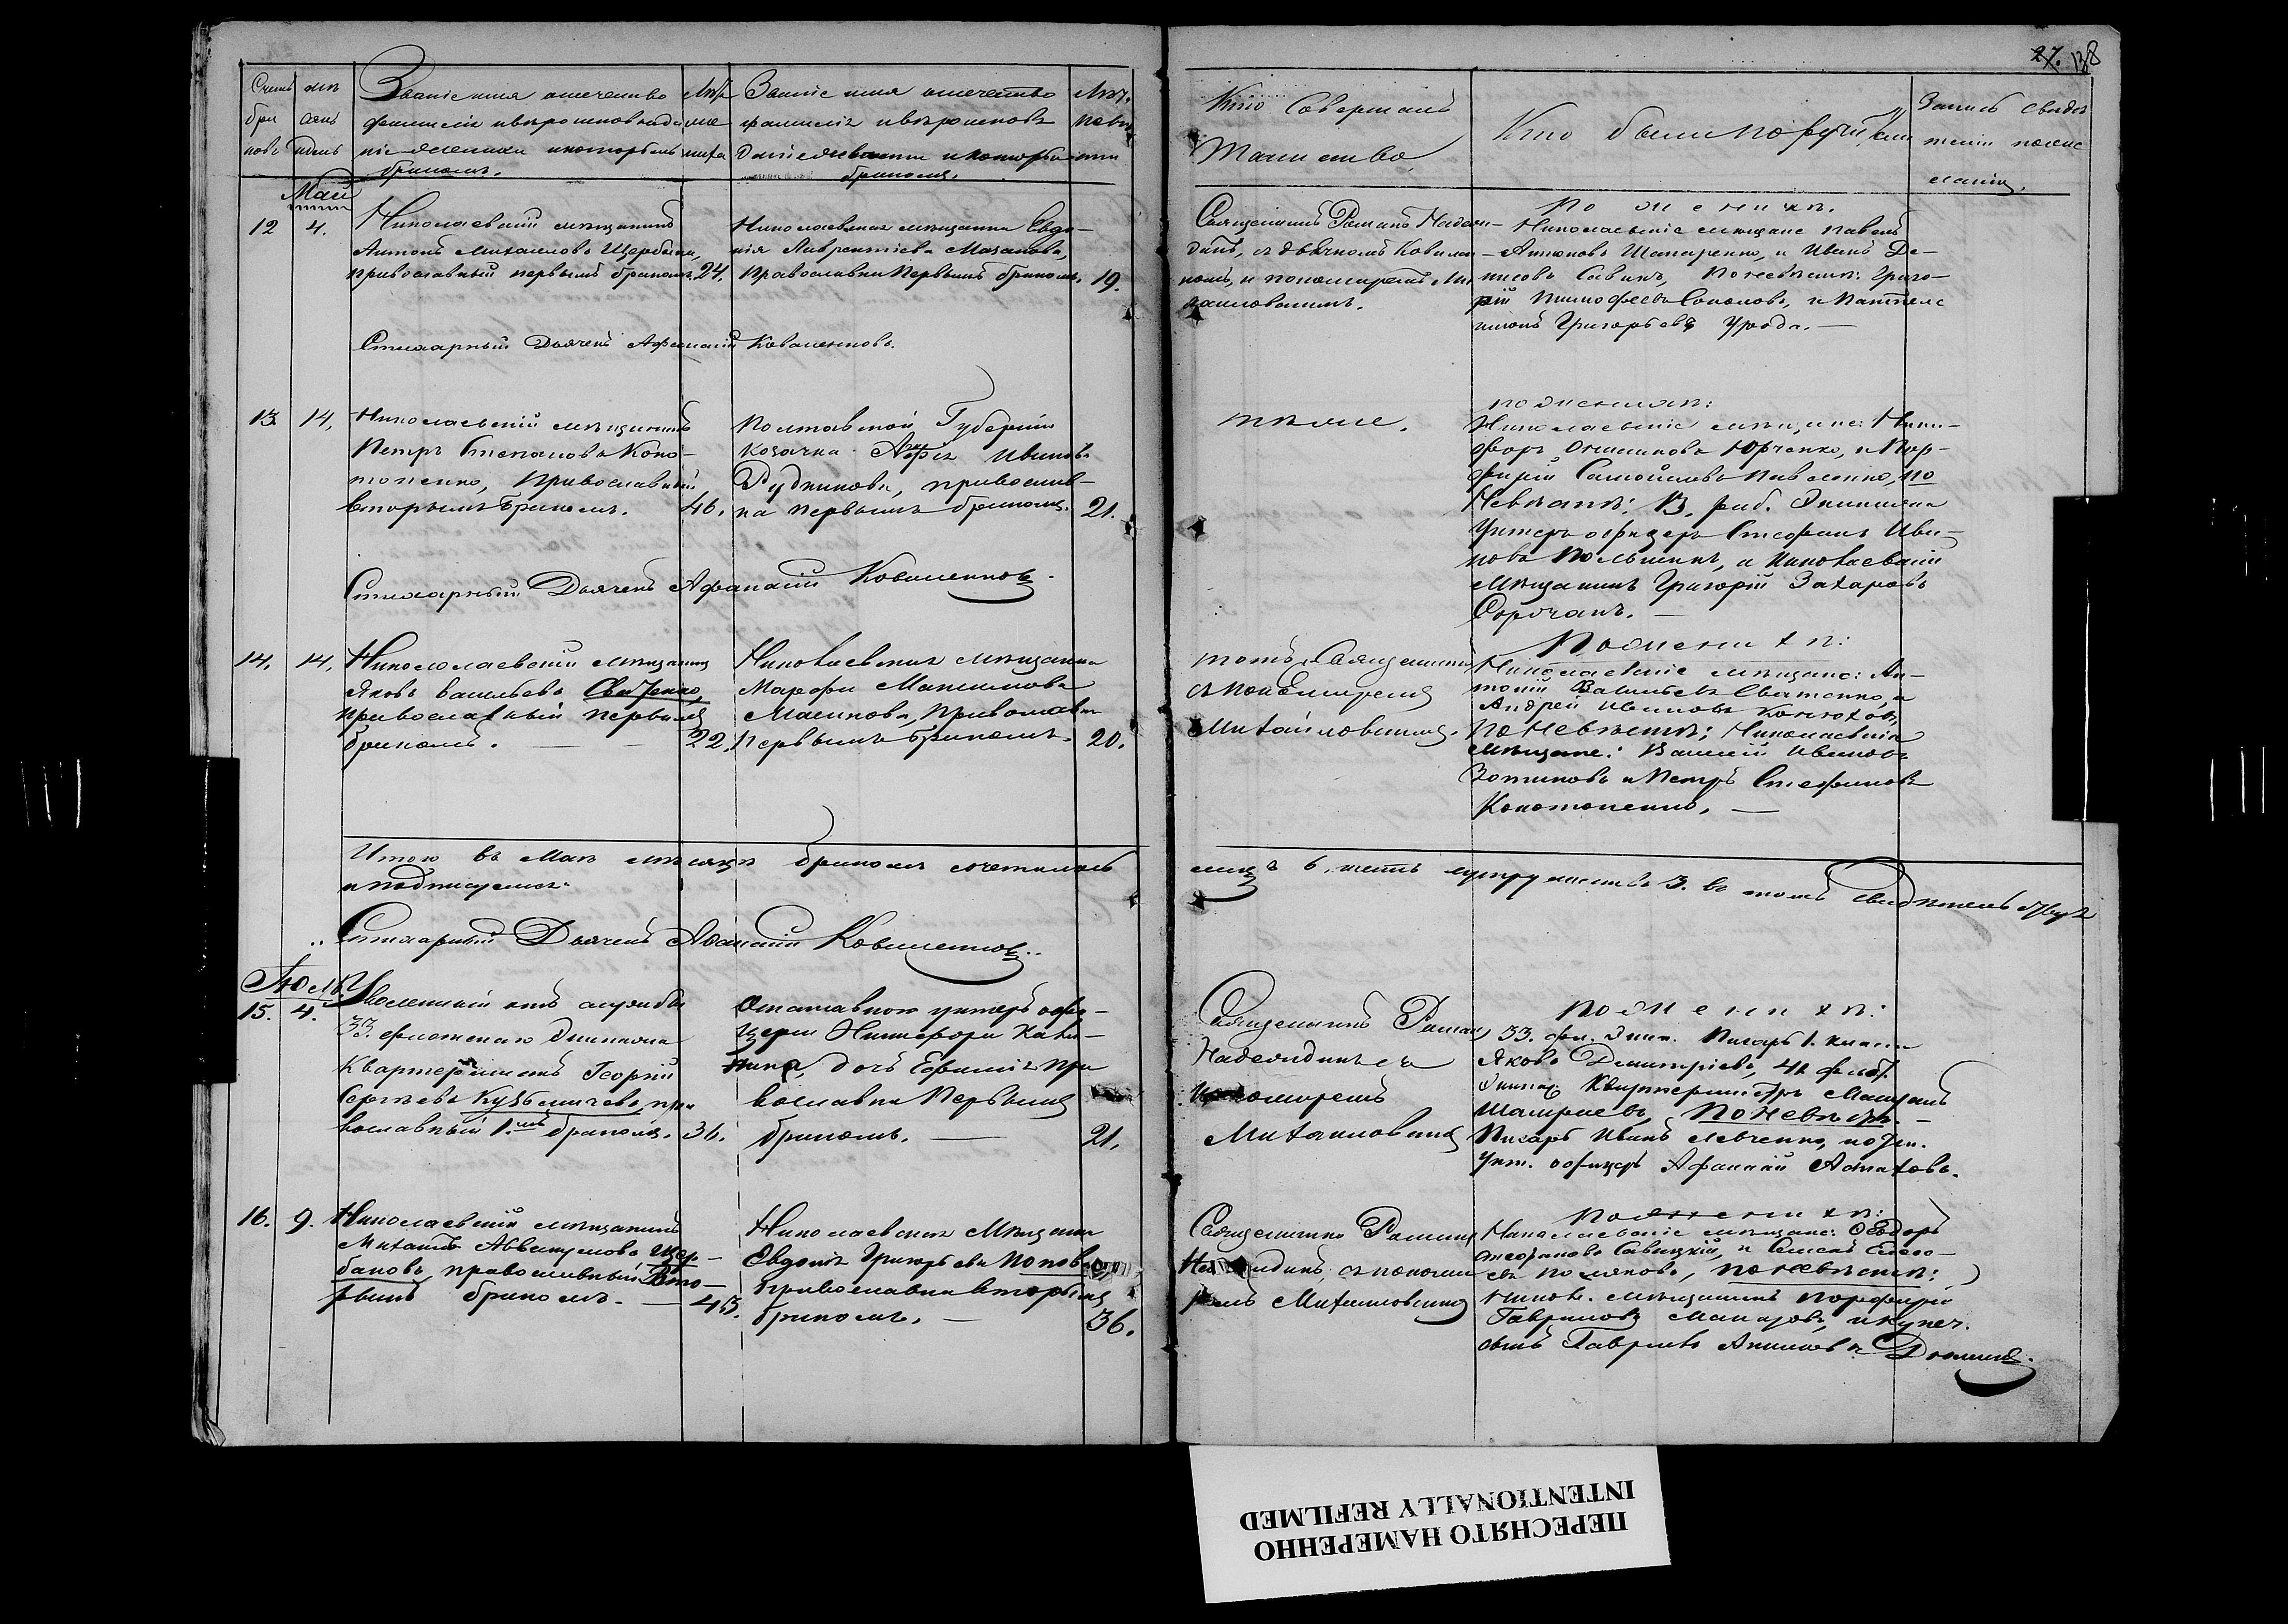 27. 138
Счетъ
бра
ковъ
мѣ
сяцъ
и день
Званіе имя отечество
фамилія и вѣроисповѣда
ніе жениха и которымъ
бракомъ.
Лѣта
же
ниха
Званіе имя отечество
фамилія и вѣроисповѣ
даніе невѣсты и которымъ
бракомъ.
Лѣт.
невѣ
сты
Кто Совершалъ
Таинство
Кто были поручители
Запись свидѣ
Май
12 4.
Николаевскій мѣщанинъ
Антонъ Михаиловъ Щербина,
православный первымъ бракомъ. 24.
Николаевская мѣщанка Евдо-
кія Лаврентіева Мазанова,
Православна Первымъ бракомъ. 19.
Священникъ Романъ Надеж-
динъ, съ дьячкомъ Ковален-
комъ, и пономаремъ Ми
хаиловскимъ.
По женихѣ.
Николаевскіе мѣщане Павелъ
Антоновъ Шапаренко, и Иванъ Де-
нисовъ Савинъ, По невѣстѣ: Григо-
рій Тимофеевъ Соколовъ, и Пантеле
имонъ Григорьевъ Урода. —
Стихарный Дьячекъ Афанасій Коваленковъ.
13. 14.
Николаевскій мѣщанинъ
Петръ Степановъ Коно-
топенко, Православный
вторымъ бракомъ. 46.
Полтавской Губерніи
козачка Ивановъ
Рудникова, православ-
на первымъ бракомъ. 21.
тѣже.
по женихѣ:
Николаевскіе мѣщане: Ники-
форъ Онисимовъ Юрченко, и Пор-
фирій Самойловъ Павленко, по
Невѣстѣ: В. раб. Экипажа
Унтеръ офицеръ Стефанъ Ива-
новъ Польшинъ, и Николаевскій
Мѣщанинъ Григорій Захаровъ
Сорочанъ. —
Стихарный Дьячекъ Афанасій Коваленковъ.
14. 14.
Николаевскій мѣщанинъ
Яковъ Васильевъ Святенко,
православный первымъ
бракомъ. — — 22.
Николаевская мѣщанка
Марфа Максимова
Масикова, Православна
Первымъ бракомъ. 20.
тотъ Священникъ
съ пономаремъ
Михайловскимъ.
По женихѣ:
Николаевскіе мѣщане: Ан-
тоній Васильевъ Святенко, и
Андрей Ивановъ Конюховъ,
По Невѣстѣ: Николаевскіе
мѣщане: Василій Ивановъ
Зотиковъ и Петръ Стефановъ
Конотопенко. —
Итого въ Маѣ мѣсяцѣ бракомъ сочеталось
лицъ 6, четъ супружества 3. въ томъ
и подписуемся.
Стихарный Дьячекъ Афанасій Коваленковъ.
Іюль.
15. 4.
Уволенный отъ службы
33. флотскаго Экипажа
Квартермистъ Георгій
Сергѣевъ Кузьмичевъ, пра
вославный 1.мъ бракомъ. 36.
Отставного унтеръ офи-
цера Никифора
дочь Евфимія пра
вославна Первымъ
бракомъ. — 21.
Священникъ Романъ
Надеждинъ съ
пономаремъ
Михаиловскимъ
По женихѣ:
33. фл. Экип. Писарь 1. класса
Яковъ Димитріевъ, 41 флот.
Экипаж. Квартермистръ
По Невѣстѣ. —
Писарь Иванъ Левченко,
Унт. офицеръ Афанасій Астаховъ.
16. 9.
Николаевскій мѣщанинъ
Михаилъ Аввакумовъ Щер-
баковъ, православный Вто-
рымъ бракомъ. — 45.
Николаевская Мѣщанка
Евдокія Григорьева Попова
православна вторымъ
бракомъ. — 36.
Священникъ Романъ
Надеждинъ, съ понома
ремъ Михаиловскимъ
По женихѣ:
Николаевскіе мѣщане: Ѳедоръ
Стефановъ Савицкій, и Семенъ
Поляковъ, по невѣстѣ:
Никол. мѣщанинъ Порфирій
Гавриловъ Макаровъ, и купеч.
сынъ Гавріилъ
ПЕРЕСНЯТО НАМЕРЕННО
INTENTIONALLY REFILMED